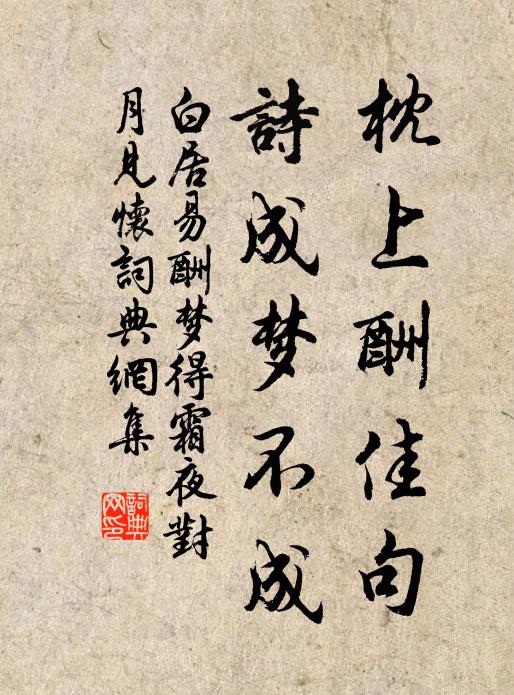 枕上酬佳句
詩成梦不成
白居易酬梦得霜夜對
月見懷詞典網集
詞典
网印